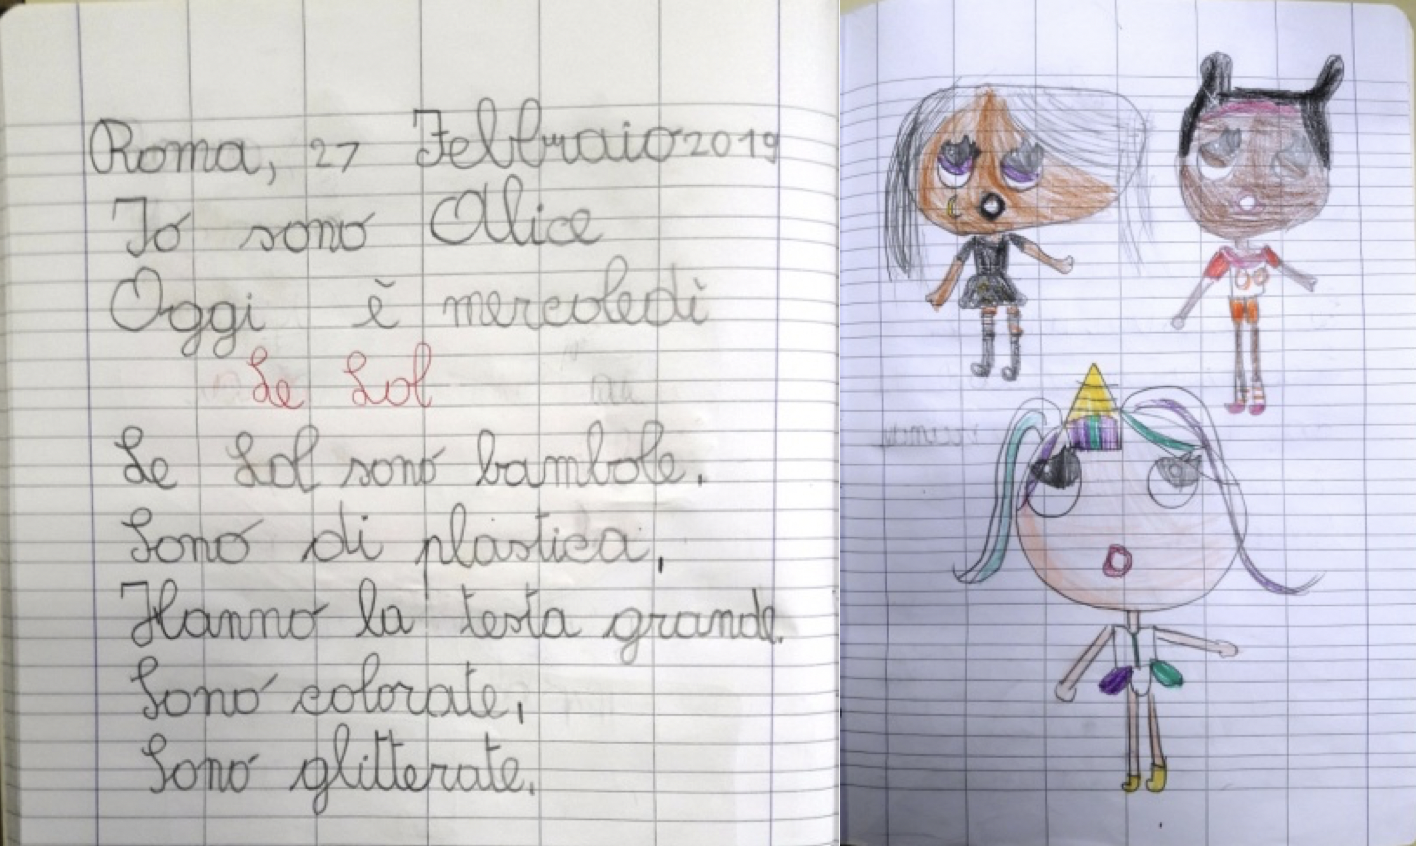 Roma, 27 Febbraio 2019
Io sono Alice
Oggi è mercoledì
Le Lol
Le Lol sono bambole.
Sono di plastica.
Hanno la testa grande.
Sono colorate.
Sono glitterate.